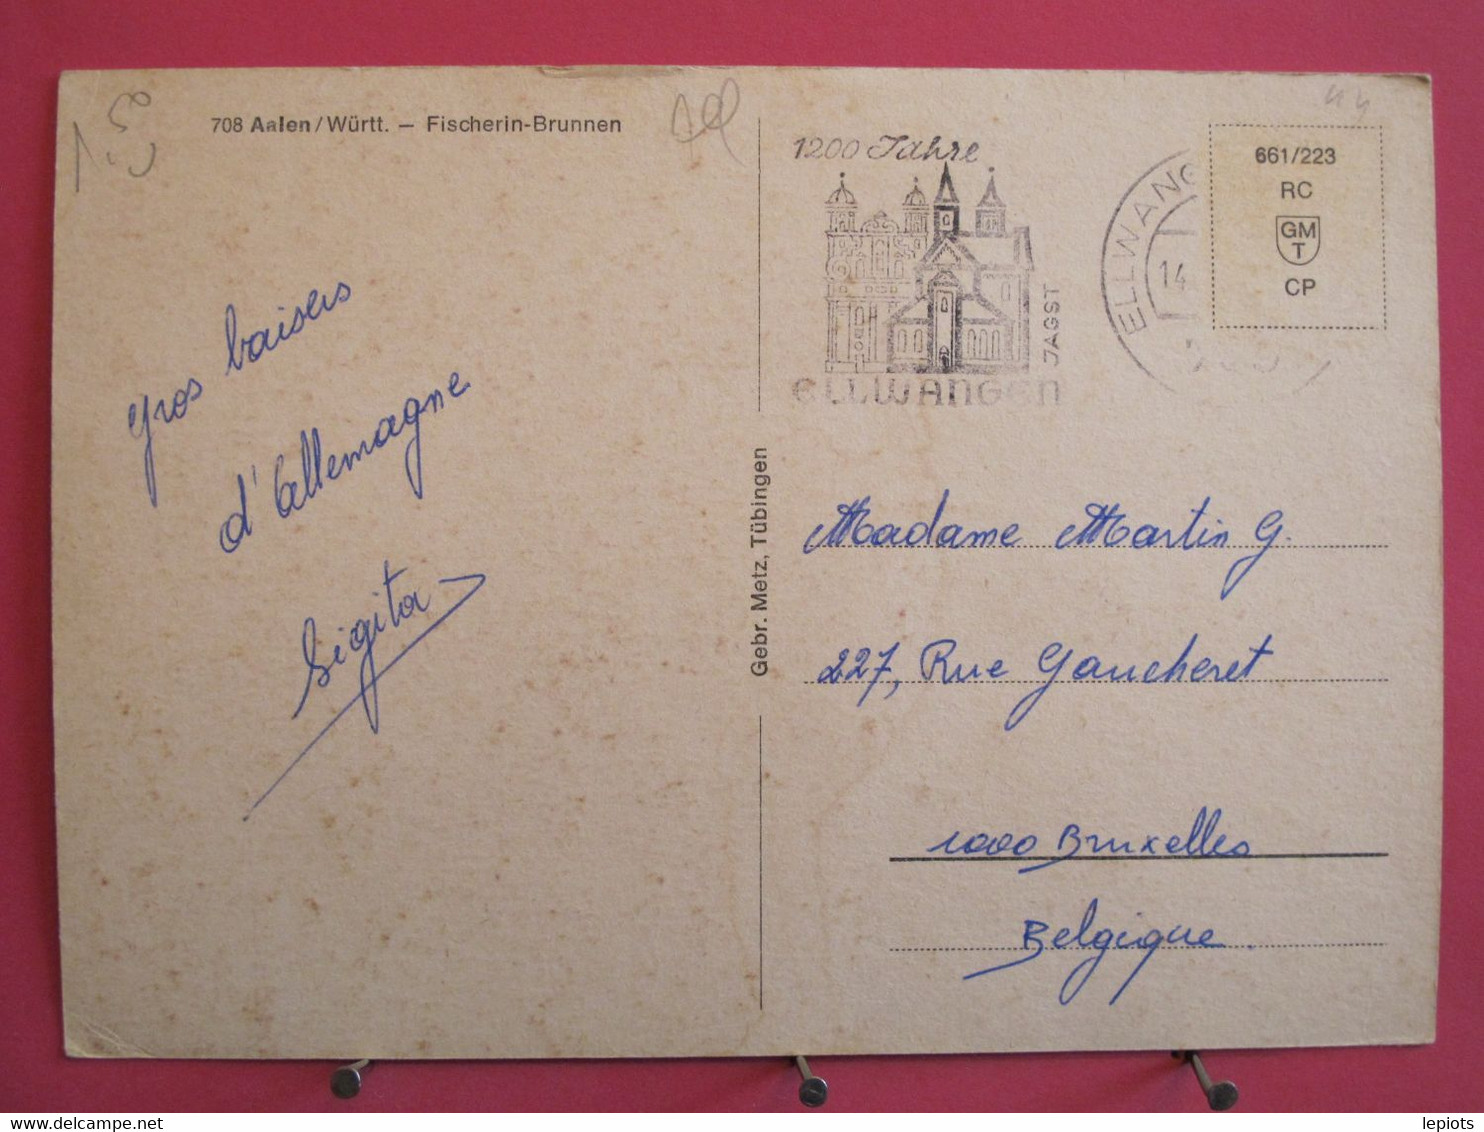 708 Aalen/Württ. – Fischerin-Brunnen
gros baisers
d'Allemagne
Sigita
Gebr. Metz, Tübingen
1200 Jahre
ELLWANGEN
JAGST
ELLWANG
14.
661/223
RC
GM
T
CP
Madame Martin G.
227, Rue Gaucheret
1000 Bruxelles
Belgique.
lepiots